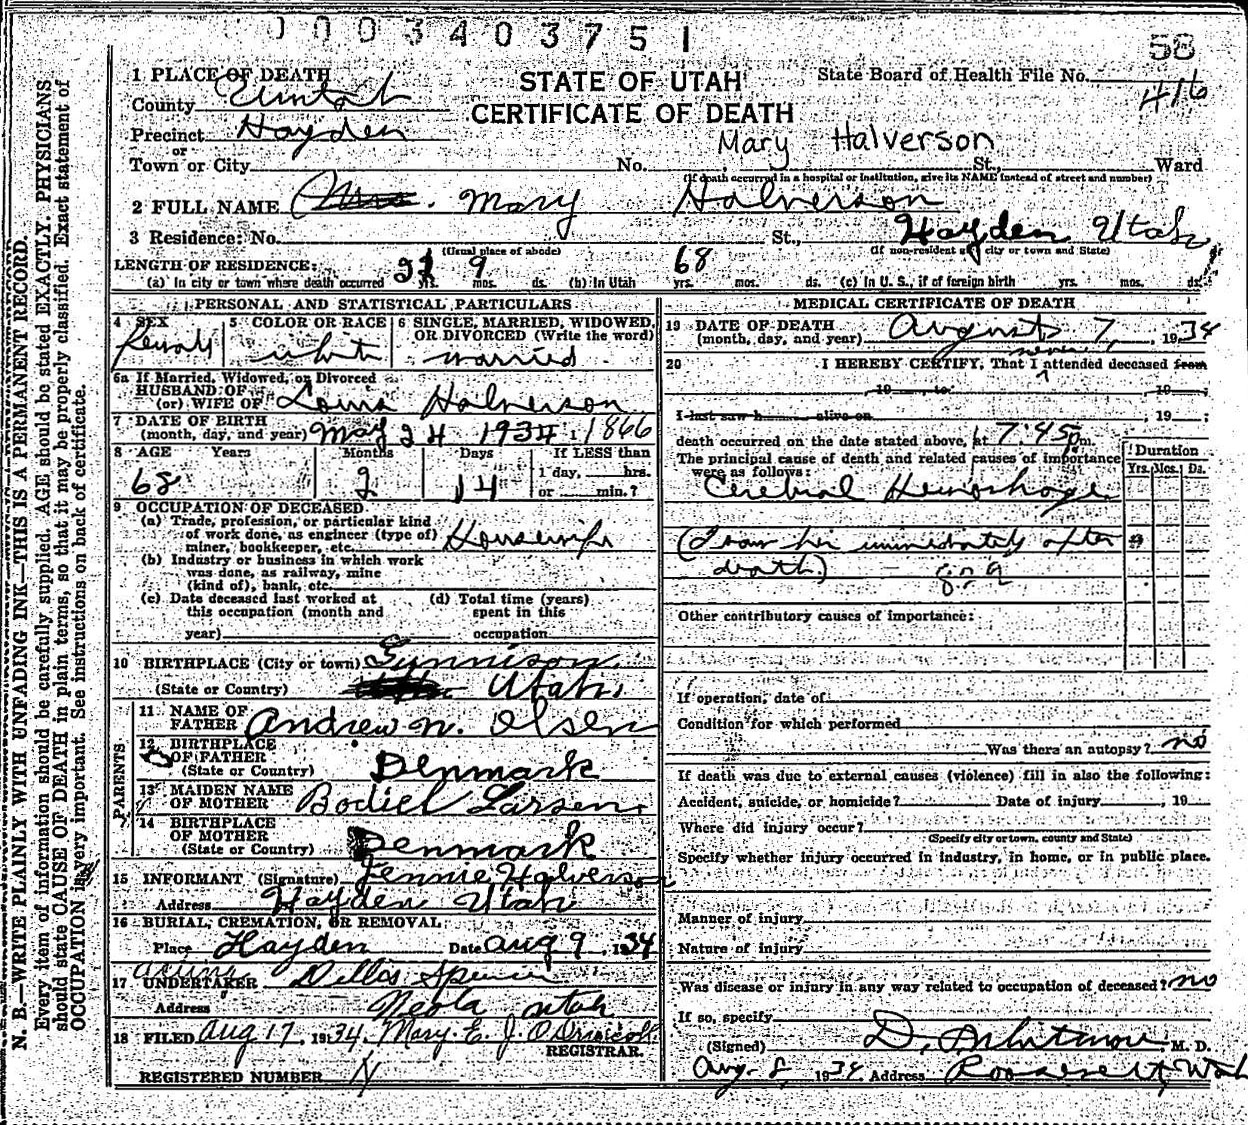 0003403751
58
STATE OF UTAH
CERTIFICATE OF DEATH
State Board of Health File No. 416
1 PLACE OF DEATH
County Uintah
Precinct Hayden
or
Mary Halverson
Town or City No. St., Ward
(If death occurred in a hospital or institution, give its NAME instead of street and number)
2 FULL NAME Mrs. Mary Halverson
3 Residence: No. St., Hayden Utah
(Usual place of abode) (If non-resident city or town and State)
LENGTH OF RESIDENCE:
(a) In city or town where death occurred yrs. 9 mos. ds. (b) In Utah 68 yrs. mos. ds. (c) In U. S., if of foreign birth yrs. mos. ds.
PERSONAL AND STATISTICAL PARTICULARS
4 SEX Female
5 COLOR OR RACE white
6 SINGLE, MARRIED, WIDOWED, OR DIVORCED (Write the word) married
6a If Married, Widowed, or Divorced
HUSBAND OF
(or) WIFE OF Halverson
7 DATE OF BIRTH
(month, day, and year) May 24 1934 1866
8 AGE Years Months Days If LESS than
68 2 14 1 day, hrs.
or min.?
9 OCCUPATION OF DECEASED
(a) Trade, profession, or particular kind
of work done, as engineer (type of)
miner, bookkeeper, etc. Housewife
(b) Industry or business in which work
was done, as railway, mine
(kind of), bank, etc.
(c) Date deceased last worked at
this occupation (month and
year)
(d) Total time (years)
spent in this
occupation
10 BIRTHPLACE (City or town) Gunnison
(State or Country) Utah
PARENTS
11 NAME OF
FATHER Andrew N. Olsen
12 BIRTHPLACE
OF FATHER
(State or Country) Denmark
13 MAIDEN NAME
OF MOTHER Bodiel Larsen
14 BIRTHPLACE
OF MOTHER
(State or Country) Denmark
15 INFORMANT (Signature) Jennie Halverson
Address Hayden Utah
16 BURIAL, CREMATION, OR REMOVAL
Place Hayden Date Aug 9, 1934
acting
17 UNDERTAKER Dellos Spencer
Address Neola Utah
18 FILED Aug 17, 1934, Mary E. J. O'Driscoll
REGISTRAR.
REGISTERED NUMBER
MEDICAL CERTIFICATE OF DEATH
19 DATE OF DEATH
(month, day, and year) August 7, 1934
never
20 I HEREBY CERTIFY, That I attended deceased from
, 19 to , 19
I last saw h alive on , 19 ;
death occurred on the date stated above, at 7:45 pm.
The principal cause of death and related causes of importance
were as follows:
Duration
Yrs. Mos. Ds.
Cerebral Hemorrhage
(I saw her immediately after
death)
Other contributory causes of importance:
If operation, date of
Condition for which performed
Was there an autopsy? no
If death was due to external causes (violence) fill in also the following:
Accident, suicide, or homicide? Date of injury , 19
Where did injury occur?
(Specify city or town, county and State)
Specify whether injury occurred in industry, in home, or in public place.
Manner of injury
Nature of injury
Was disease or injury in any way related to occupation of deceased? no
If so, specify
(Signed) D. Whitmore M. D.
Aug. 8, 1934 Address Roosevelt, Utah
N. B.—WRITE PLAINLY WITH UNFADING INK—THIS IS A PERMANENT RECORD.
Every item of information should be carefully supplied. AGE should be stated EXACTLY. PHYSICIANS
should state CAUSE OF DEATH in plain terms, so that it may be properly classified. Exact statement of
OCCUPATION is very important. See instructions on back of certificate.